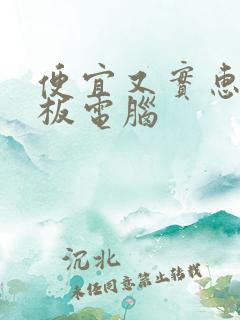 便宜又實惠
板電腦
沉北
未经同意禁止转载